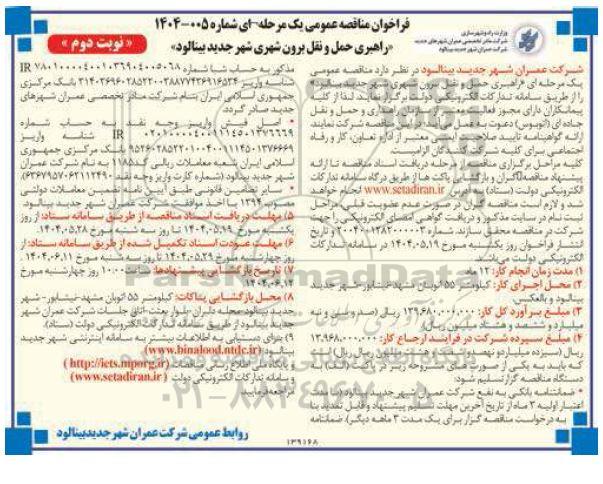 فراخوان مناقصه عمومی یک مرحله-ای شماره ۰۰۵-۱۴۰۴
«راهبری حمل و نقل برون شهری شهر جدید بینالود»
« نوبت دوم »
وزارت راه و شهرسازی
شرکت مادر تخصصی عمران شهرهای جدید
شرکت عمران شهر جدید بینالود
شرکت عمران شهر جدید بینالود در نظر دارد مناقصه عمومی
یک مرحله ای «راهبری حمل و نقل برون شهری شهر جدید بینالود»
را از طریق سامانه تدارکات الکترونیکی دولت برگزار نماید. لذا از کلیه
پیمانکاران دارای مجوز فعالیت در زمینه راهداری و حمل و نقل
جاده ای (اتوبوس) دعوت به
ارائه گواهینامه تایید صلاحیت ایمنی معتبر از اداره تعاون، کار و رفاه
اجتماعی برای کلیه شرکت کنندگان الزامیست.
کلیه مراحل برگزاری مناقصه از مرحله دریافت اسناد مناقصه تا ارائه
پیشنهاد مناقصه گران و بازگشایی پاکت ها از طریق درگاه سامانه تدارکات
الکترونیکی دولت (ستاد) به آدرس www.setadiran.ir انجام خواهد
شد و لازم است مناقصه گران در صورت عدم عضویت قبلی مراحل
ثبت نام در سایت مذکور و دریافت گواهی امضای الکترونیکی را جهت
شرکت در مناقصه محقق سازند. شماره و تاریخ
انتشار فراخوان روز یکشنبه مورخ ۱۴۰۴.۰۵.۱۹ در سامانه تدارکات
الکترونیکی دولت می باشد.
۱) مدت زمان انجام کار: ۱۲ ماه
۲) محل اجرای کار: کیلومتر ۵۵ اتوبان مشهد-نیشابور-شهر جدید
بینالود و بالعکس
۳) مبلغ برآورد کل کار: ۱۳۹.۶۸۰.۰۰۰.۰۰۰ ریال (صد و سی و نه
میلیارد و ششصد و هشتاد میلیون ریال)
۴) مبلغ سپرده شرکت در فرآیند ارجاع کار: ۱۳.۹۶۸.۰۰۰.۰۰۰
ریال (سیزده میلیارد و نهصد و میلیون ریال)
که باید به یکی از صورت های مشروحه زیر
دستگاه مناقصه گزار تسلیم شود:
- ضمانتنامه بانکی به نفع شرکت عمران شهر جدید بینالود (با مدت
اعتبار اولیه ۳ ماه از تاریخ آخرین مهلت تسلیم پیشنهاد و قابل تمدید بنا
به درخواست مناقصه گزار برای یک مدت ۳ ماهه دیگر). ضمانتنامه
مذکور به حساب شبا شماره IR
شناسه واریز بانک مرکزی
جمهوری اسلامی ایران بنام شرکت مادر تخصصی عمران شهرهای
جدید صادر گردد.
- اصل فیش واریز وجه نقد به حساب شماره
IR شناسه واریز
بانک مرکزی جمهوری
اسلامی ایران شعبه معاملات ریالی بنام شرکت عمران
شهر جدید بینالود (شماره کارت واریز وجه نقد
- سایر تضامین قانونی طبق آیین نامه تضمین معاملات دولتی
مصوب ۱۳۹۴ با اخذ موافقت شرکت عمران شهر جدید بینالود.
۵) مهلت دریافت اسناد مناقصه از طریق سامانه ستاد: از روز
یکشنبه مورخ ۱۴۰۴.۰۵.۱۹ تا روز سه شنبه مورخ ۱۴۰۴.۰۵.۲۸
۶) مهلت عودت اسناد تکمیل شده از طریق سامانه ستاد: از
روز چهارشنبه مورخ ۱۴۰۴.۰۵.۲۹ تا روز سه شنبه مورخ ۱۴۰۴.۰۶.۱۱
۷) تاریخ بازگشایی پیشنهادها: ساعت ۱۰:۰۰ روز چهارشنبه مورخ
۱۴۰۴.۰۶.۱۲
۸) محل بازگشایی پاکات: کیلومتر ۵۵ اتوبان مشهد-نیشابور- شهر
جدید بینالود- اتاق جلسات شرکت عمران شهر
جدید بینالود از طریق سامانه تدارکات الکترونیکی دولت (ستاد).
۹) برای دستیابی به اطلاعات بیشتر به سامانه اینترنتی شهر جدید
بینالود (www.binalood.ntdc.ir)
و پایگاه ملی اطلاع رسانی مناقصات (http://iets.mporg.ir)
و سامانه تدارکات الکترونیکی دولت (www.setadiran.ir)
مراجعه فرمایید.
روابط عمومی شرکت عمران شهر جدید بینالود
۱۳۹۱۶۸
ParsNamadData
۰۲۱-۸۸۳۴۹۶۷۰-۵